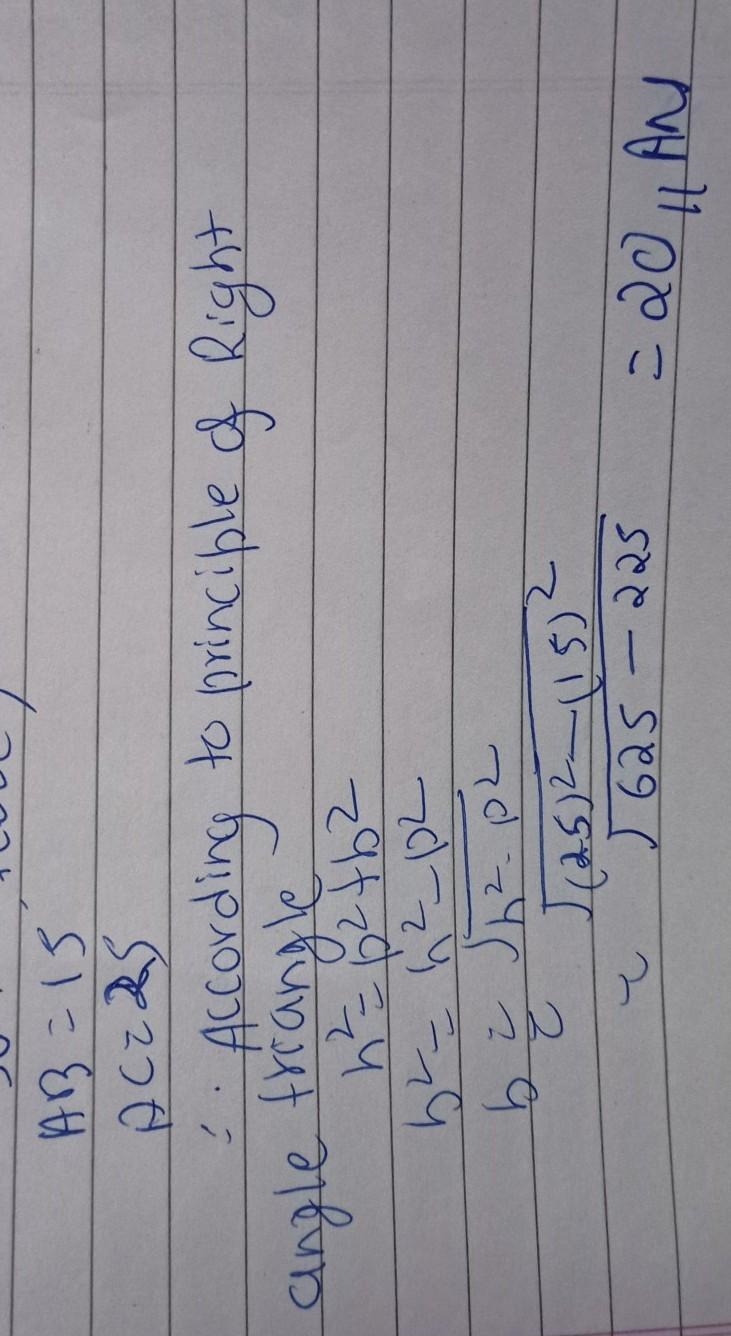 AB = 15
AC = 25
∴ According to principle of Right
angle triangle
h² = p² + b²
b² = h² - p²
b = √h² - p²
= √(25)² - (15)²
= √625 - 225 = 20 // Ans